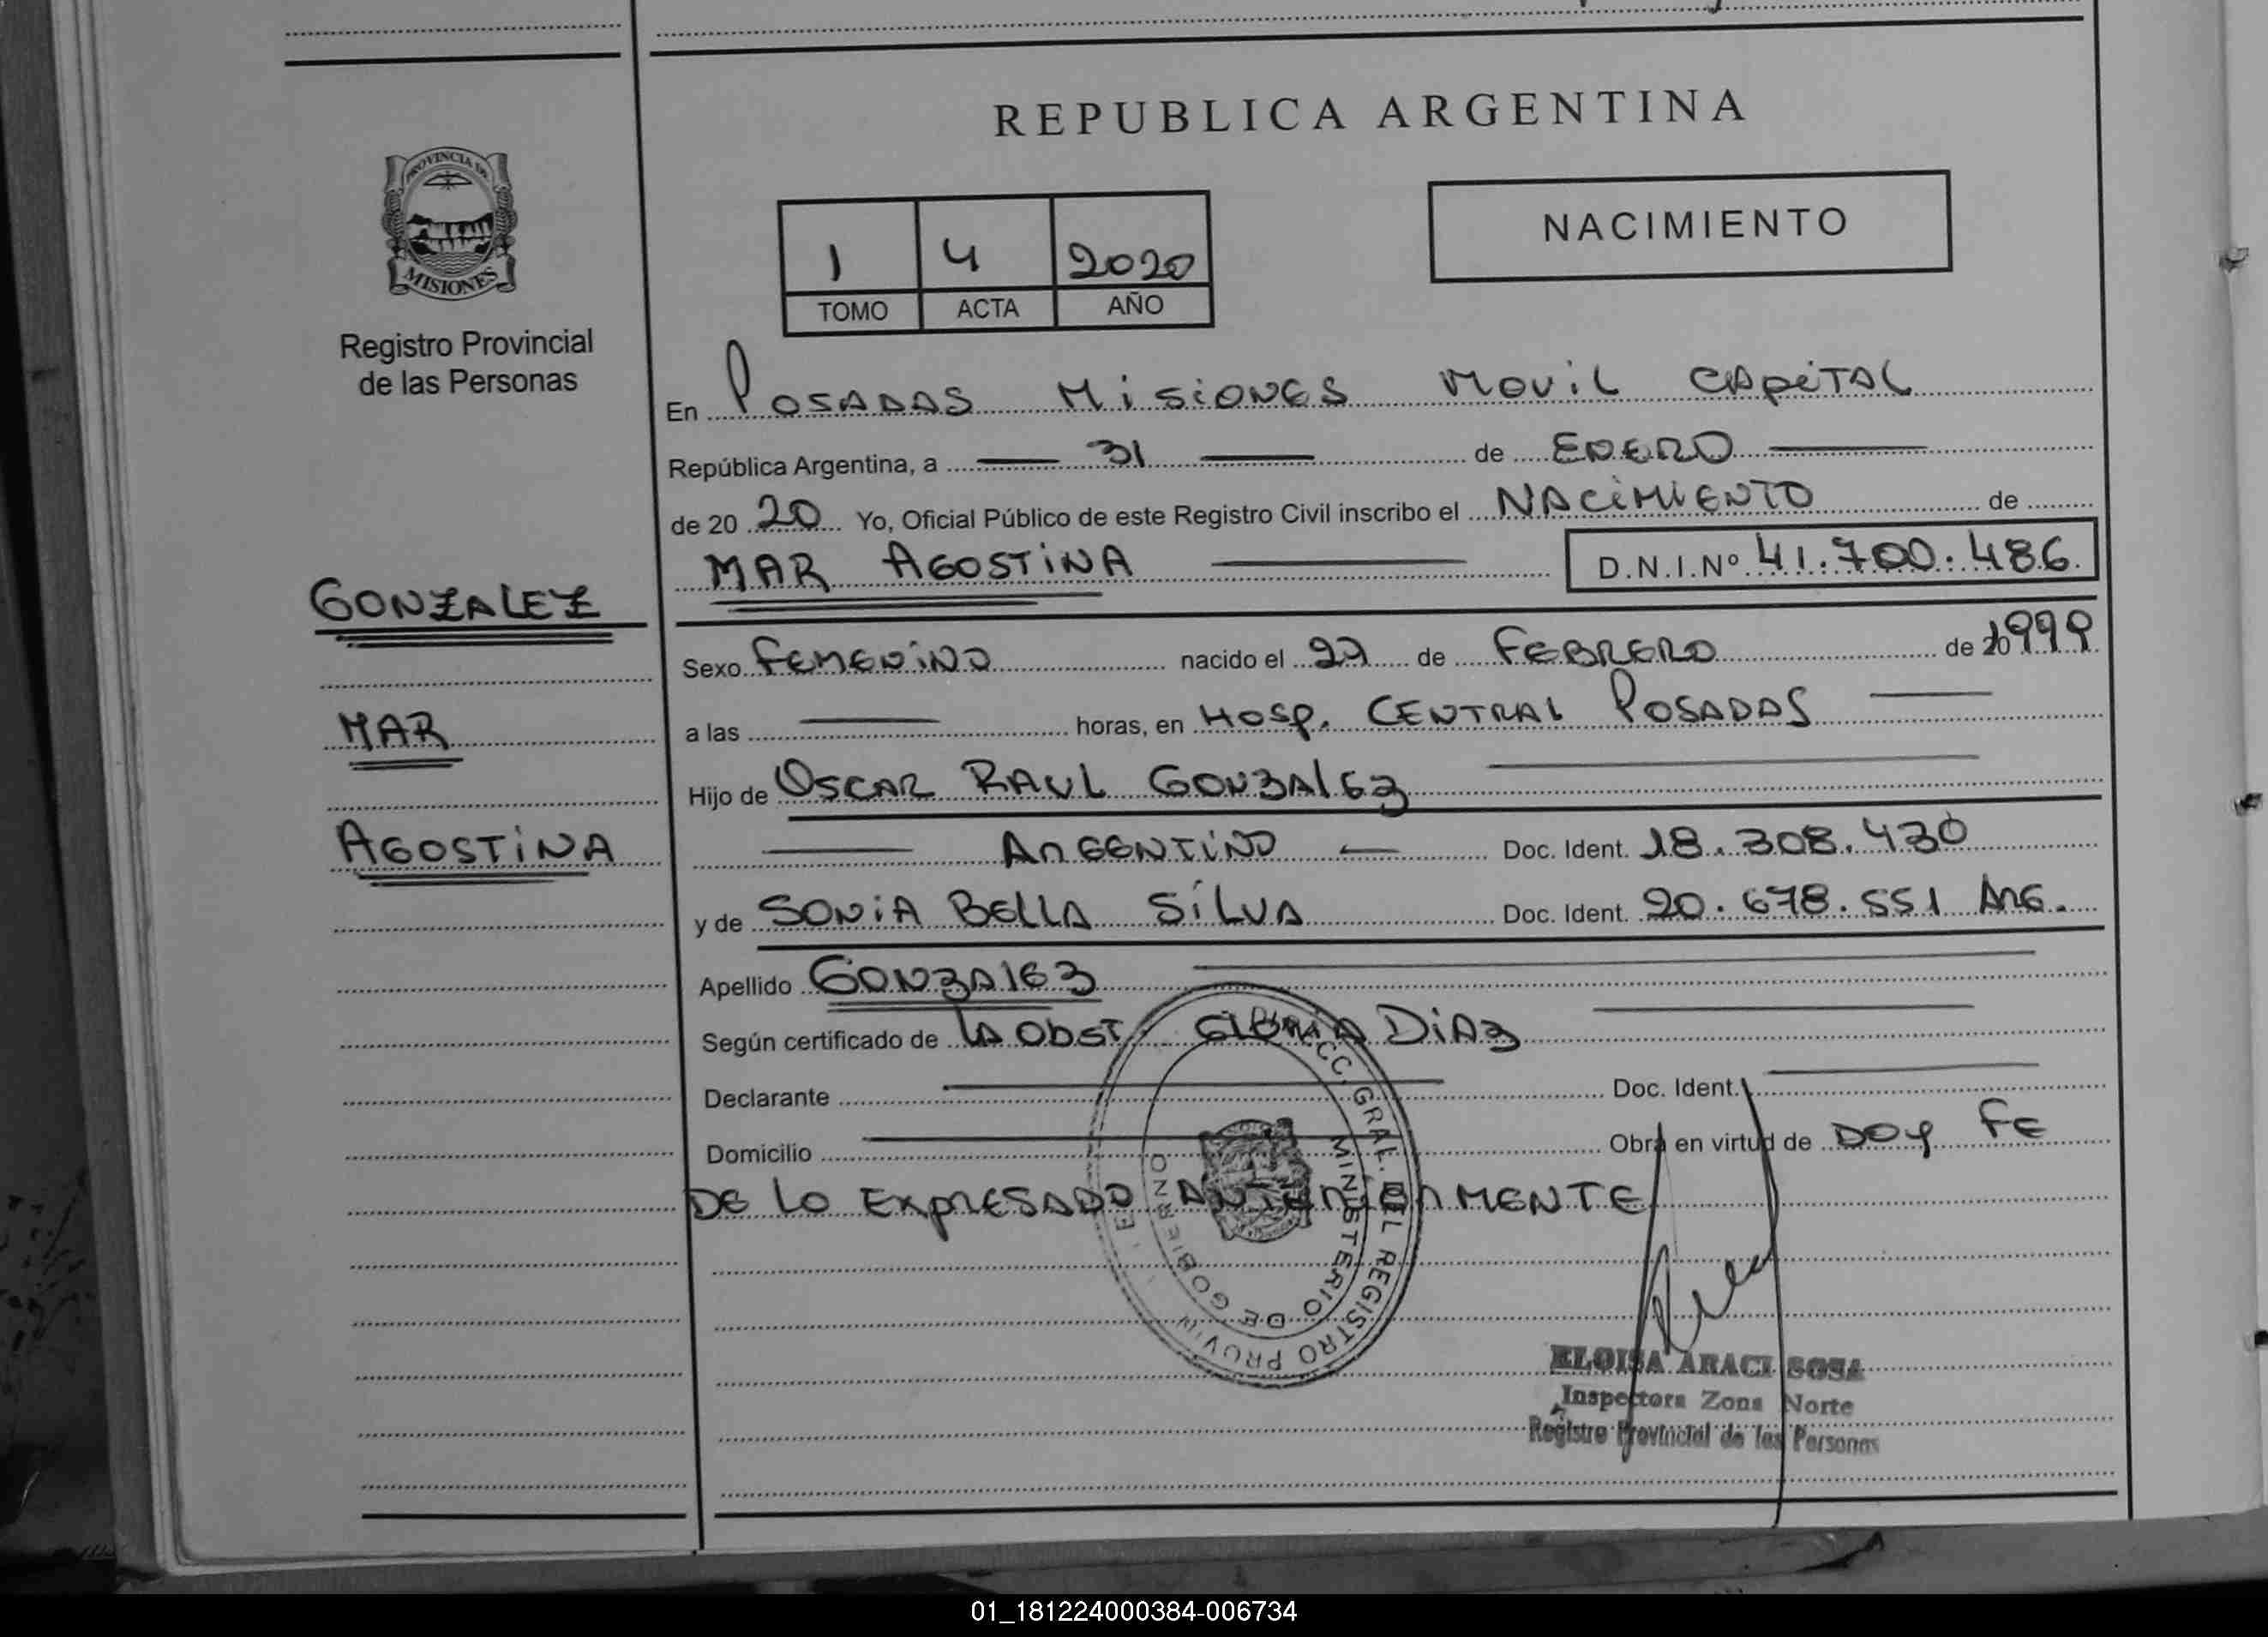 REPUBLICA ARGENTINA
PROVINCIA DE
MISIONES
Registro Provincial
de las Personas
NACIMIENTO
1 4 2020
TOMO ACTA AÑO
En Posadas Misiones Movil Capital
República Argentina, a 31 de Enero
de 20 20 Yo, Oficial Público de este Registro Civil inscribo el Nacimiento de
Mar Agostina D.N.I.Nº 41.700.486
GONZALEZ
MAR
AGOSTINA
Sexo Femenino nacido el 27 de Febrero de 1999
a las horas, en Hosp. Central Posadas
Hijo de Oscar Raul Gonzalez
Argentino Doc. Ident. 18.308.430
y de Sonia Bella Silva Doc. Ident. 20.678.551 Arg.
Apellido Gonzalez
Según certificado de la Obst. Gloria Diaz
Declarante Doc. Ident.
Domicilio Obra en virtud de Doy Fe
de lo expresado anteriormente
DIRECC. GRAL. DEL REGISTRO PROVIN
MINISTERIO DE GOBIERNO
ELOISA ARACI SOSA
Inspectora Zona Norte
Registro Provincial de las Personas
01_181224000384-006734